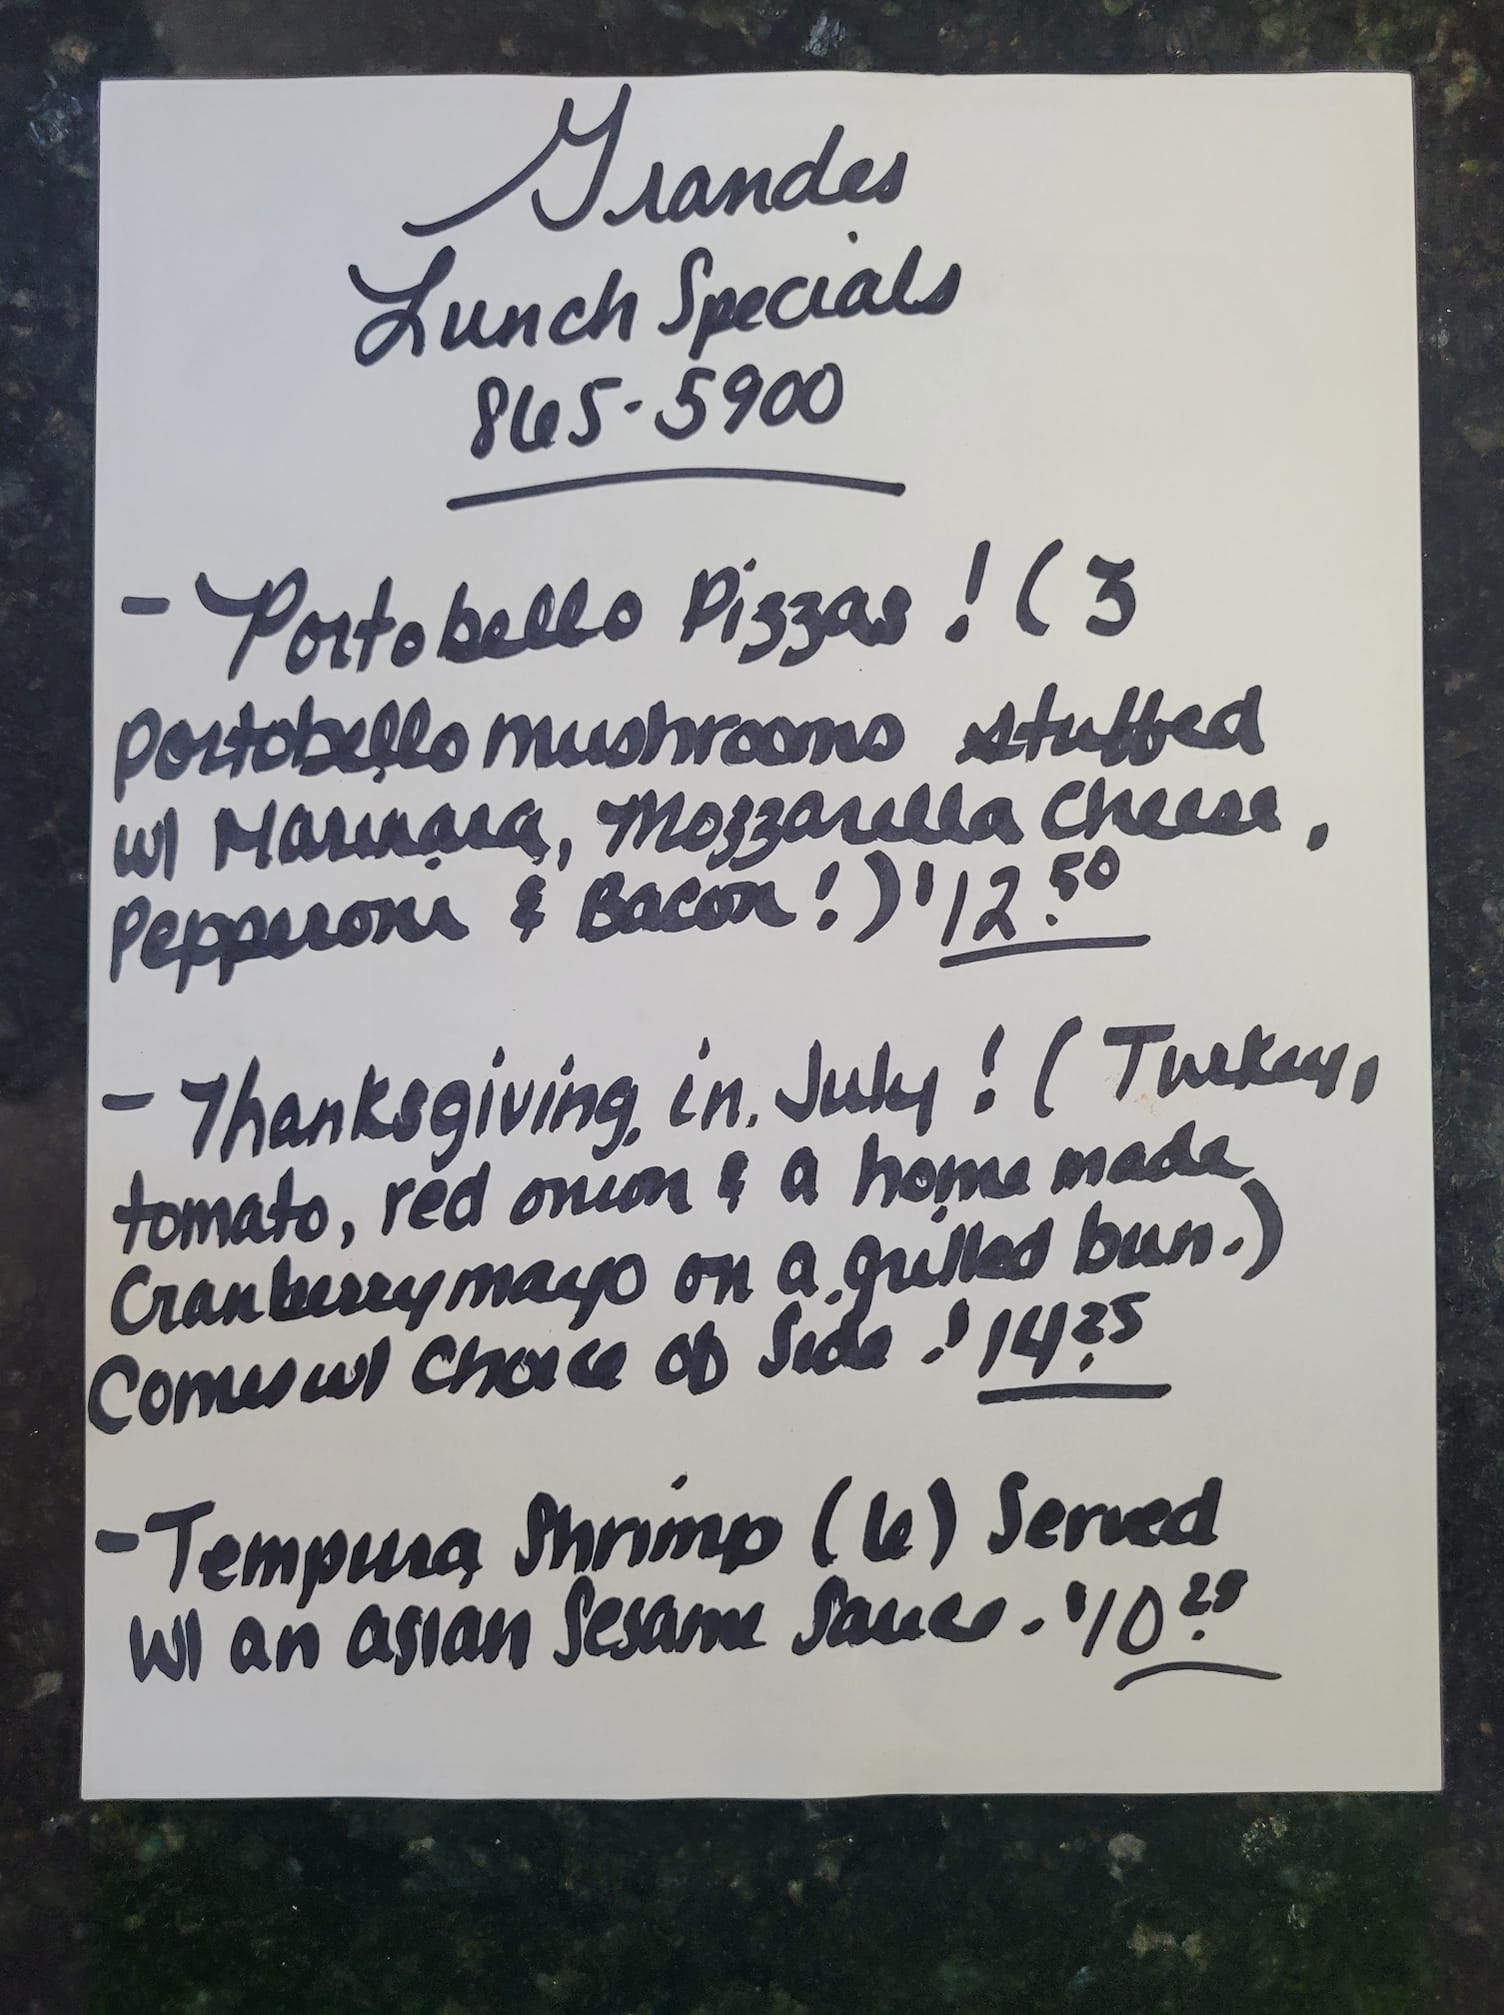 Grandes
Lunch Specials
865-5900
- Portobello Pizzas! (3
portobello mushrooms stuffed
w/ Marinara, Mozzarella Cheese,
Pepperoni & Bacon!) $12.50
- Thanksgiving in July! (Turkey,
tomato, red onion & a home made
Cranberry mayo on a grilled bun.)
Comes w/ Choice of Side. $14.25
- Tempura Shrimp (6) Served
w/ an asian Sesame Sauce. $10.25